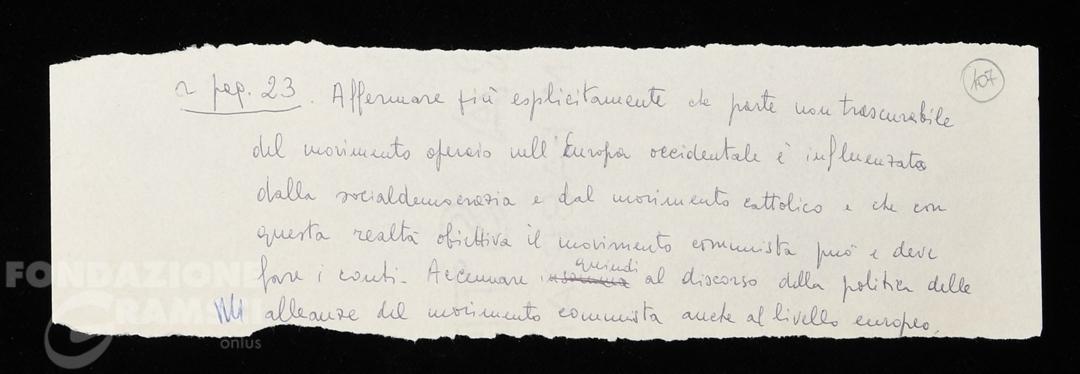 107
a pag. 23. Affermare più esplicitamente che parte non trascurabile
del movimento operaio nell'Europa occidentale è influenzata
dalla socialdemocrazia e dal movimento cattolico e che con
questa realtà obiettiva il movimento comunista può e deve
quindi
fare i conti. Accennare insomma al discorso della politica delle
alleanze del movimento comunista anche al livello europeo.
FONDAZIONE
GRAMSCI
onlus